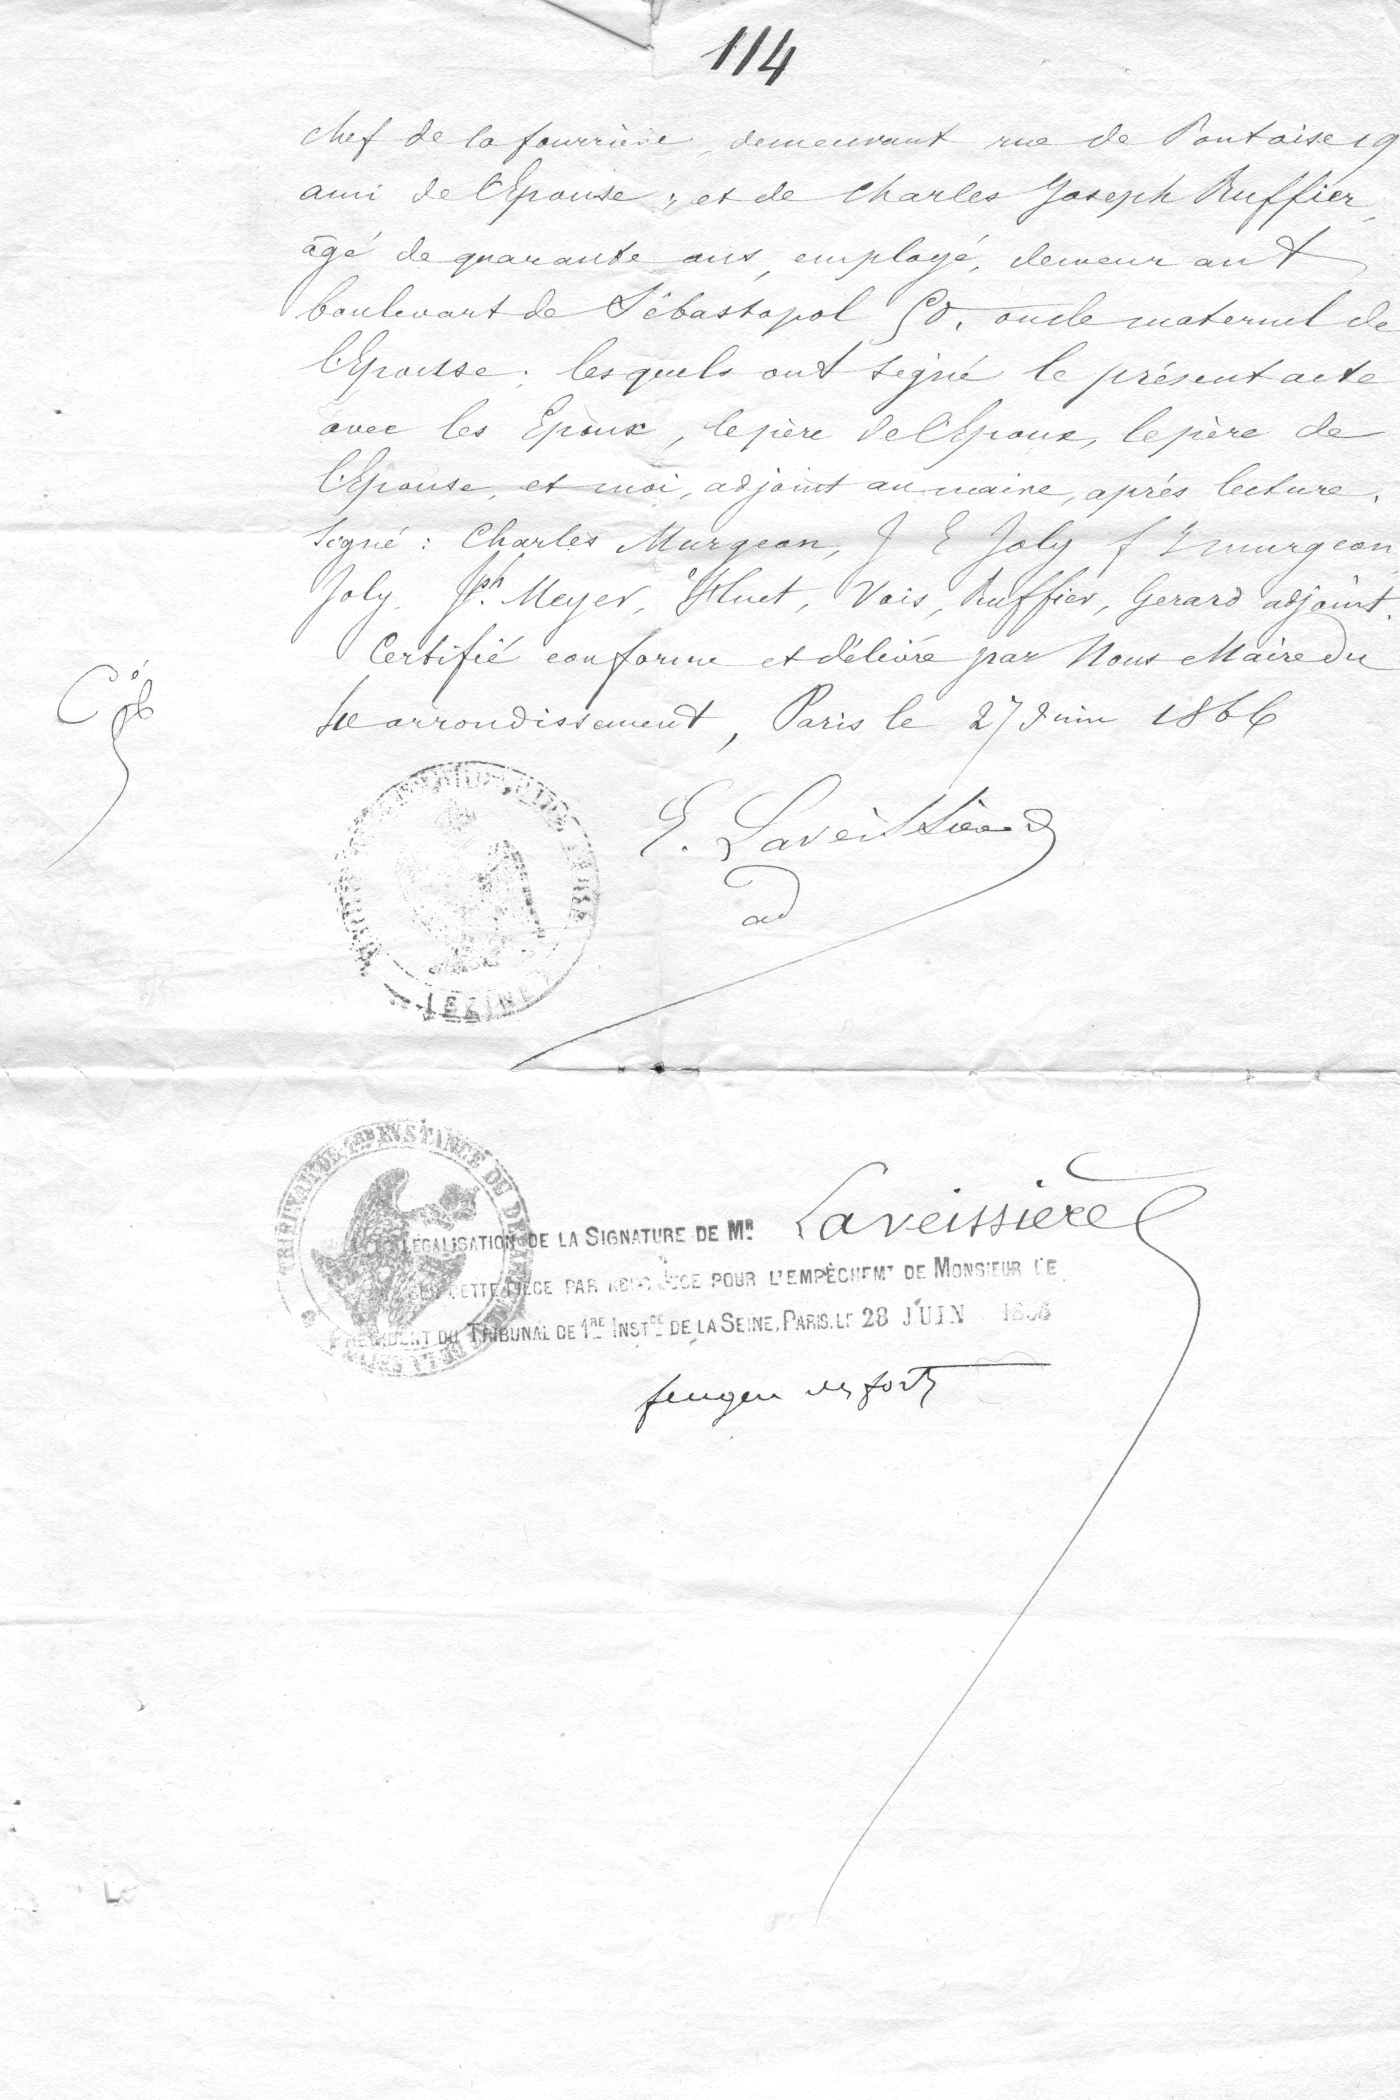 114
chef de la fourrière, demeurant rue de Pontoise 19
ami de l'Epouse ; et de Charles Joseph Ruffier,
âgé de quarante ans, employé, demeurant
boulevart de Sébastopol 50. oncle maternel de
l'Epouse ; lesquels ont signé le présent acte
avec les Epoux, le père de l'Epoux, le père de
l'Epouse, et moi, adjoint au maire, après lecture.
Signé : Charles Murgeon, J E Joly murgeon
Joly, Jph. Meyer, Huet, Vois, Ruffier, Gerard adjoint.
Certifié conforme et délivré par Nous Maire du
arrondissement, Paris le 27 Juin 1866
E. Laveissière
ad
TRIBUNAL DE 1ERE INSTANCE DU
LÉGALISATION DE LA SIGNATURE DE MR. Laveissière
CETTE PIÈCE PAR POUR L'EMPÊCHEMT DE MONSIEUR LE
PRÉSIDENT DU TRIBUNAL DE 1RE INSTCE DE LA SEINE, PARIS, LE 28 JUIN